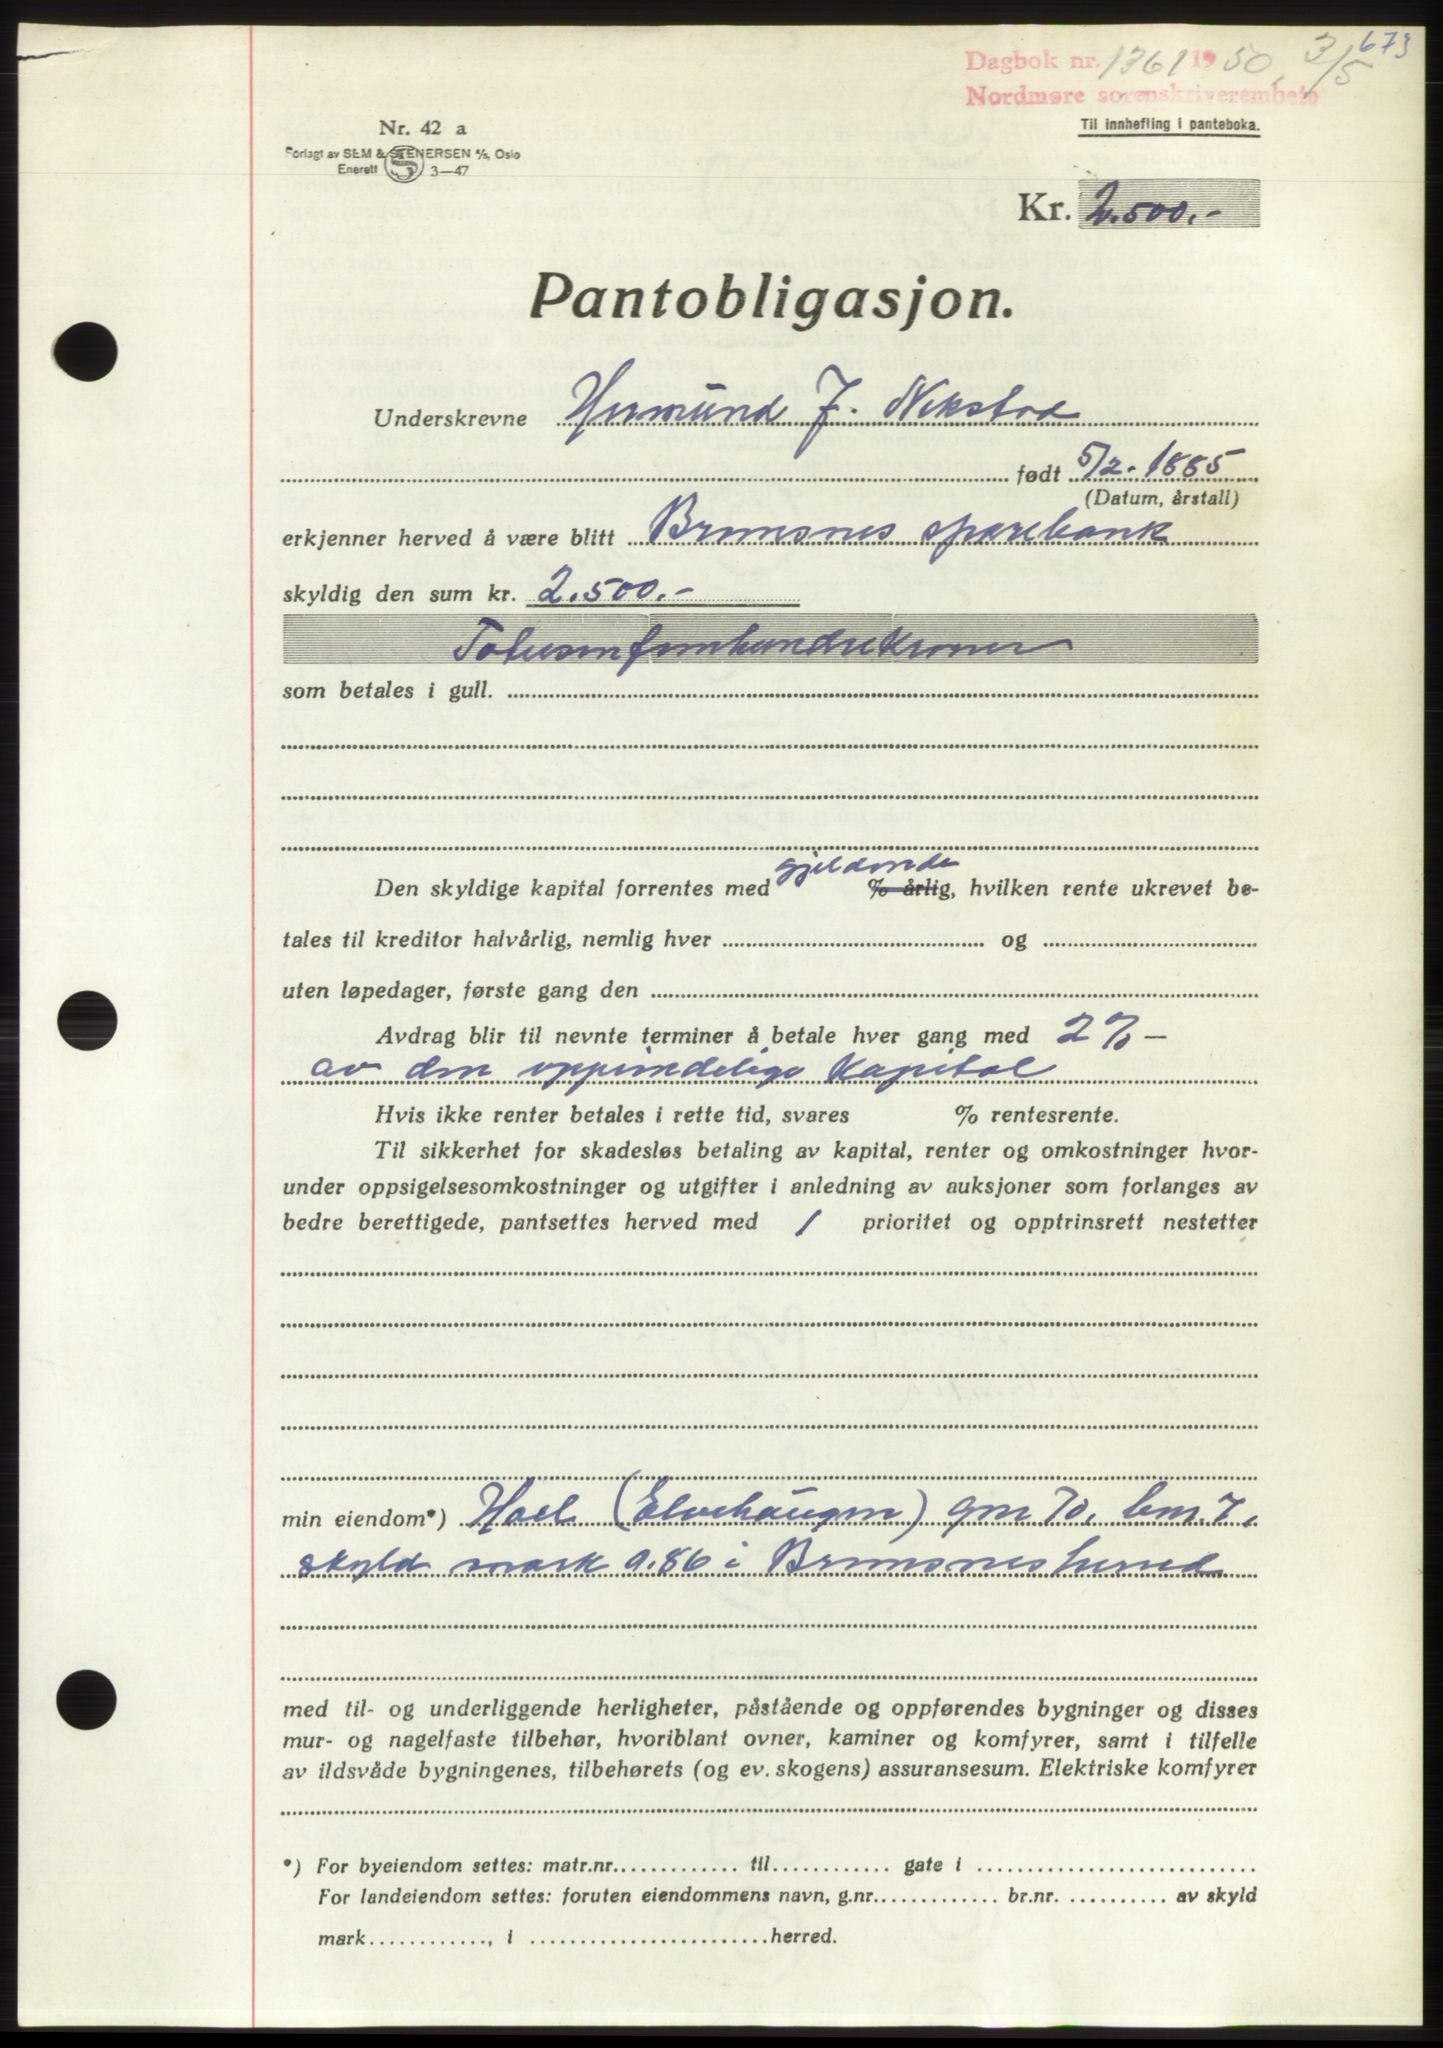 673
Dagbok nr. 1361 1950, 3/5
Nordmøre sorenskriverembete
Til innhefting i panteboka.
Nr. 42 a
Forlagt av SEM & STENERSEN A/S, Oslo
Enerett S 3—47
Kr. 2.500.-
Pantobligasjon.
Underskrevne Hermund J. Nekstad
født 5/2. 1885
(Datum, årstall)
erkjenner herved å være blitt Bremsnes sparebank
skyldig den sum kr. 2.500.-
Totusenfemhundrekroner
som betales i gull.
gjeldende
Den skyldige kapital forrentes med % årlig, hvilken rente ukrevet be-
tales til kreditor halvårlig, nemlig hver og
uten løpedager, første gang den
Avdrag blir til nevnte terminer å betale hver gang med 2% —
av den opprindelige kapital
Hvis ikke renter betales i rette tid, svares % rentesrente.
Til sikkerhet for skadesløs betaling av kapital, renter og omkostninger hvor-
under oppsigelsesomkostninger og utgifter i anledning av auksjoner som forlanges av
bedre berettigede, pantsettes herved med 1 prioritet og opptrinsrett nestetter
min eiendom*) Hoel (Elvehaugen) gnr 70, bnr. 7,
skyld mark 0.86 i Bremsnes herred
med til- og underliggende herligheter, påstående og oppførendes bygninger og disses
mur- og nagelfaste tilbehør, hvoriblant ovner, kaminer og komfyrer, samt i tilfelle
av ildsvåde bygningenes, tilbehørets (og ev. skogens) assuransesum. Elektriske komfyrer
*) For byeiendom settes: matr.nr............. til............ gate i ............................
For landeiendom settes: foruten eiendommens navn, g.nr............. br.nr. .......... av skyld
mark............, i ........................herred.